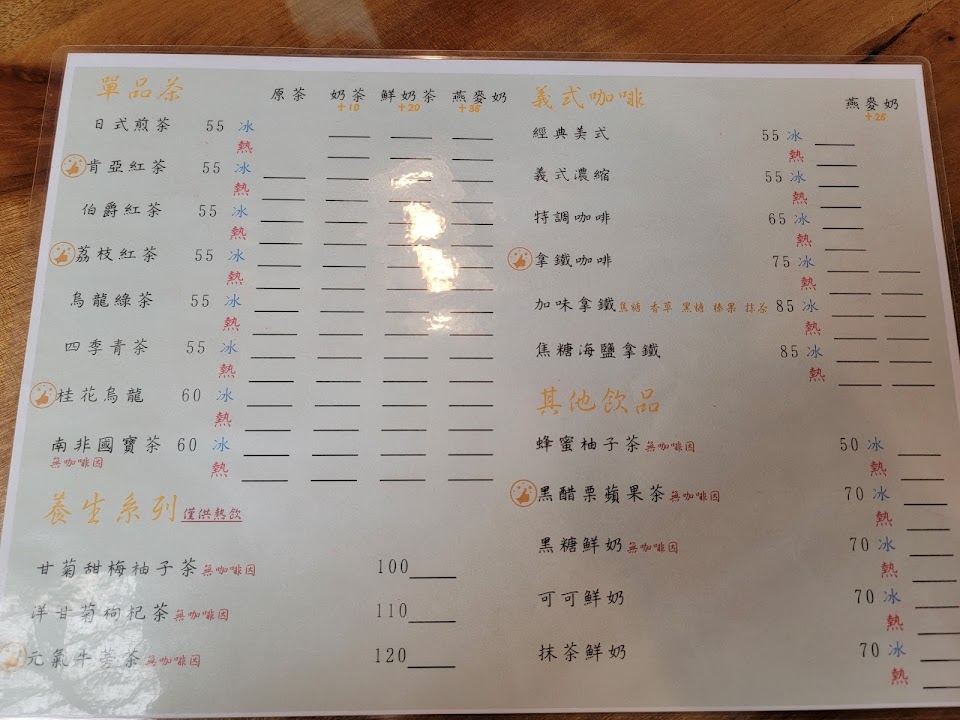 單品茶 原茶 奶茶 鮮奶茶 燕麥奶
+10 +20 +35
日式煎茶 55 冰
熱
肯亞紅茶 55 冰
熱
伯爵紅茶 55 冰
熱
荔枝紅茶 55 冰
熱
烏龍綠茶 55 冰
熱
四季青茶 55 冰
熱
桂花烏龍 60 冰
熱
南非國寶茶 60 冰
無咖啡因 熱
養生系列 僅供熱飲
甘菊甜梅柚子茶 無咖啡因 100
洋甘菊枸杞茶 無咖啡因 110
元氣牛蒡茶 無咖啡因 120
義式咖啡 燕麥奶
+25
經典美式 55 冰
熱
義式濃縮 55 冰
熱
特調咖啡 65 冰
熱
拿鐵咖啡 75 冰
熱
加味拿鐵 焦糖 香草 黑糖 榛果 抹茶 85 冰
熱
焦糖海鹽拿鐵 85 冰
熱
其他飲品
蜂蜜柚子茶 無咖啡因 50 冰
熱
黑醋栗蘋果茶 無咖啡因 70 冰
熱
黑糖鮮奶 無咖啡因 70 冰
熱
可可鮮奶 70 冰
熱
抹茶鮮奶 70 冰
熱